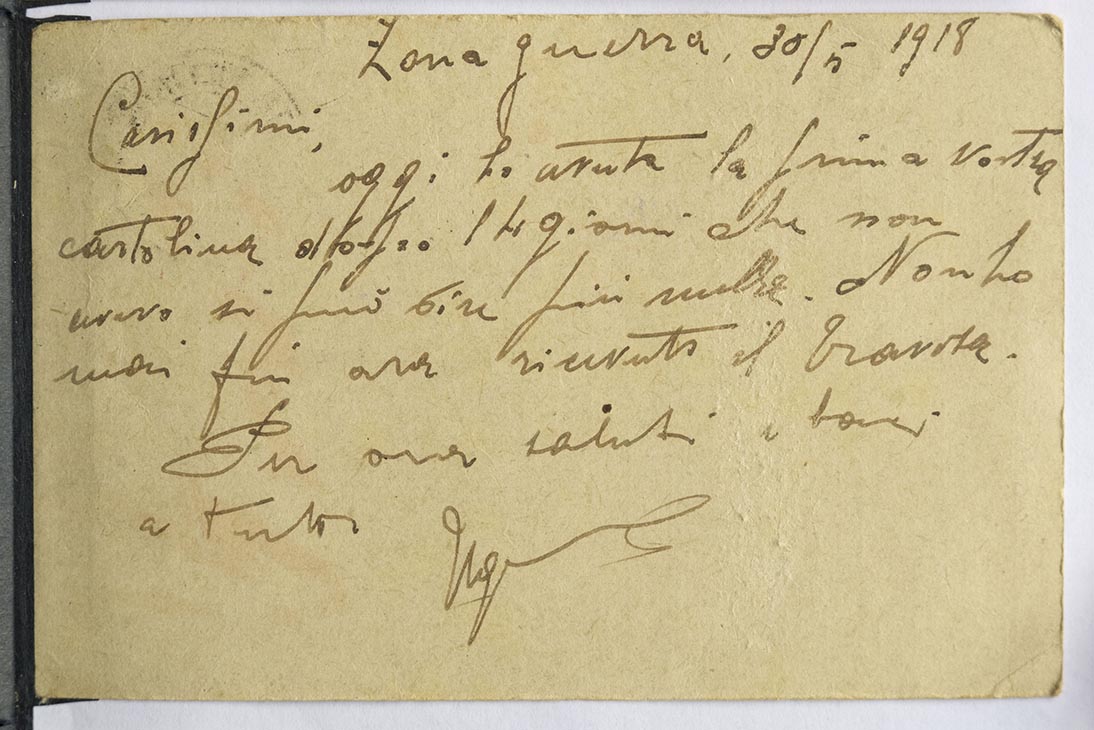 Zona guerra, 30/5 1918
Carissimi,
oggi ho avuta la prima vostra
cartolina dopo 14 giorni che non
avevo si può dire più nulla. Non ho
mai fin ora ricevuto il
Per ora saluti e baci
a tutti